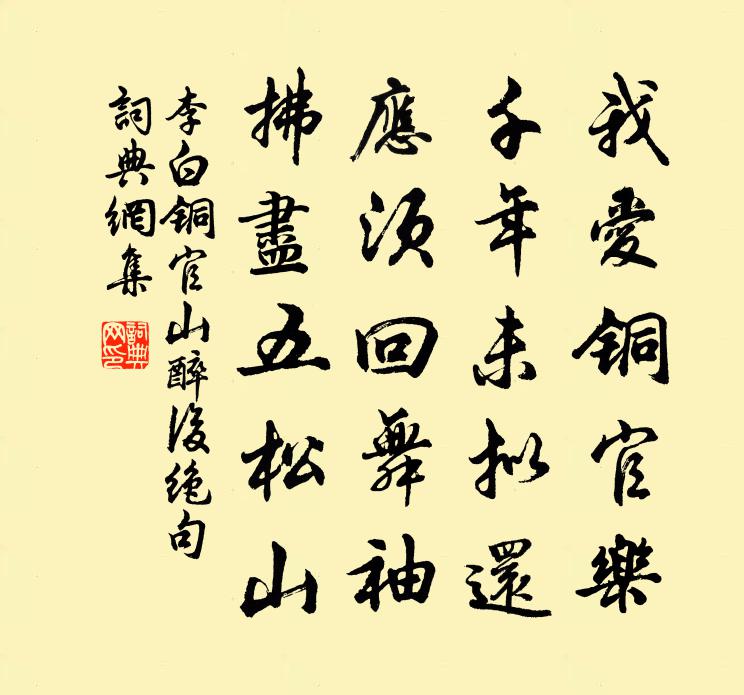 我愛銅官樂
千年未拟還
應須回舞袖
拂盡五松山
李白銅官山醉後絶句
詞典網集
詞典网印